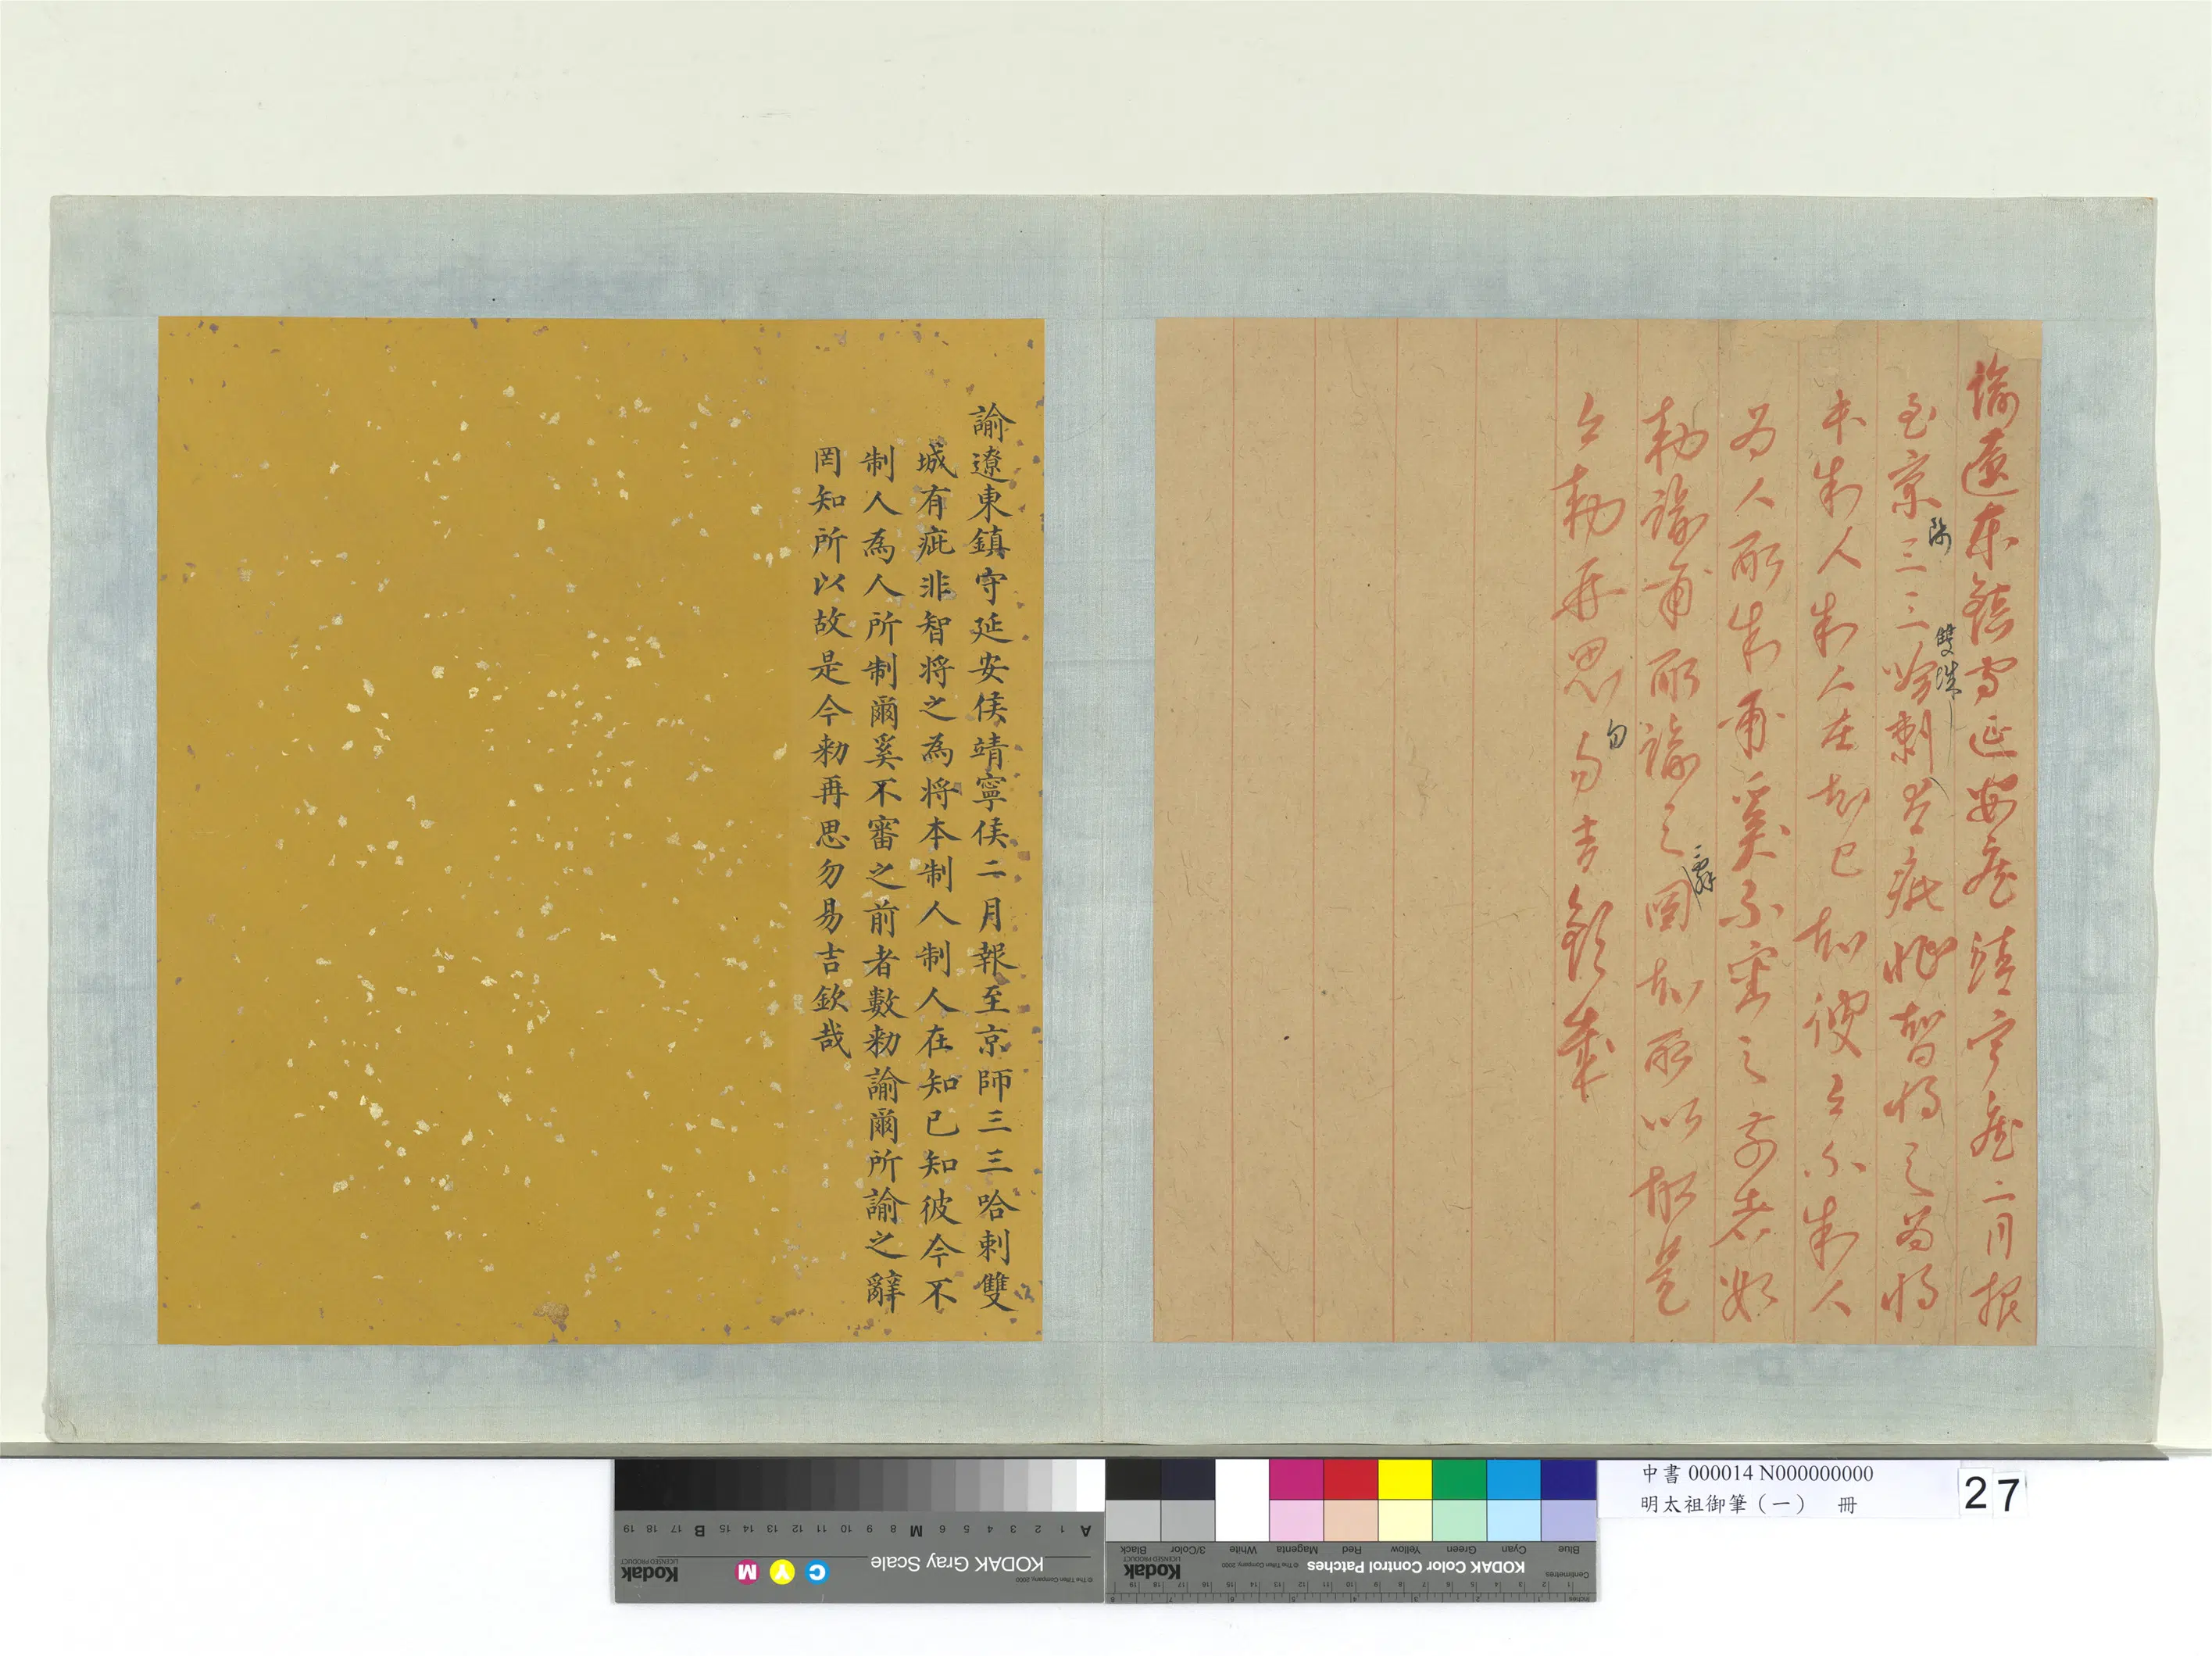 諭遼東鎮守延安侯靖寧侯二月報
至京師三三哈剌雙城有疵非智將之為將
本制人制人在知己知彼今不制人
為人所制爾奚不審之前者數
勑諭爾所諭之辭罔知所以故是
今勑再思勿易吉欽哉
諭遼東鎮守延安侯靖寧侯二月報至京師三三哈剌雙
城有疵非智將之為將本制人制人在知已知彼今不
制人為人所制爾奚不審之前者數勑諭爾所諭之辭
罔知所以故是今勑再思勿易吉欽哉
中書000014 N000000000
明太祖御筆（一） 冊
27
KODAK Gray Scale
Kodak
LICENSED PRODUCT
© The Tiffen Company, 2000
C Y M
A 1 2 3 4 5 6 M 8 9 10 11 12 13 14 15 B 17 18 19
KODAK Color Control Patches
Kodak
LICENSED PRODUCT
© The Tiffen Company, 2000
Blue Cyan Green Yellow Red Magenta White 3/Color Black
Centimetres
Inches